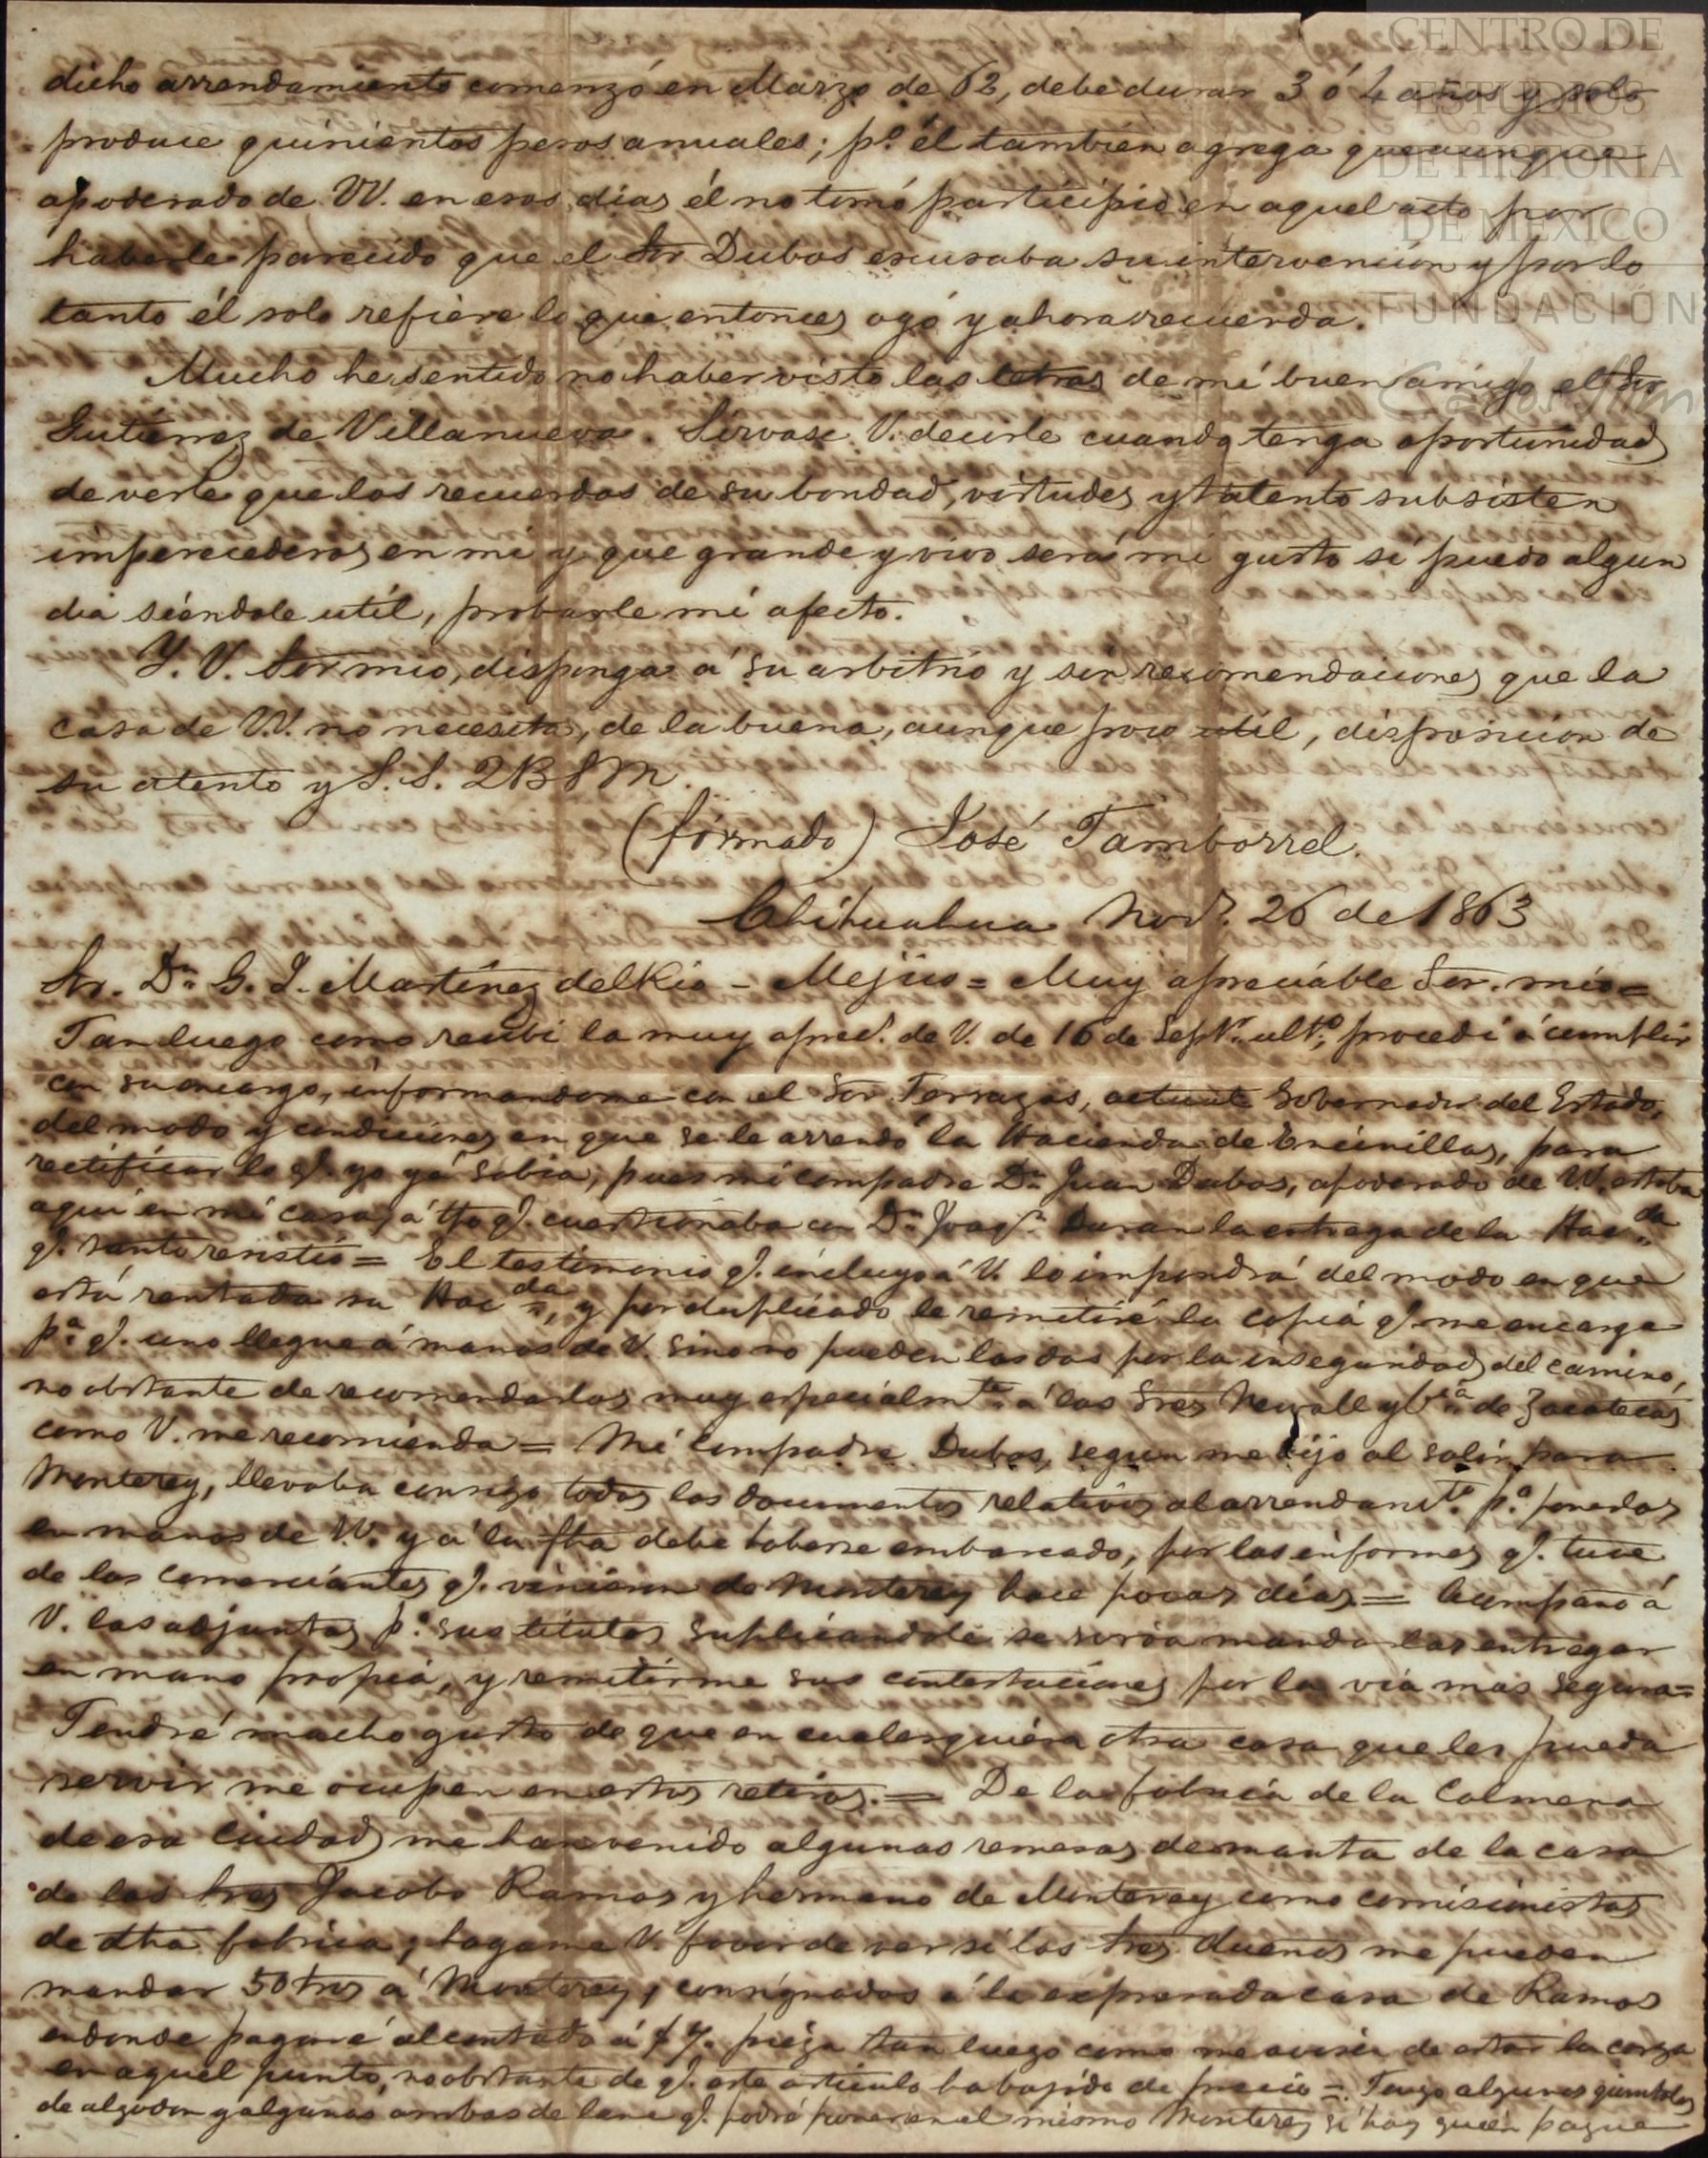 CENTRO DE
ESTUDIOS
DE HISTORIA
DE MEXICO
FUNDACIÓN
Carlos Slim
dicho arrendamiento comenzó en Marzo de 62, debe durar 3 ó 4 años y solo
produce quinientos pesos anuales; pº. él tambien agrega que aunque
apoderado de VV. en esos dias él no tomó participio en aquel acto por
haberle parecido que el Sor Dubos escusaba su intervencion y por lo
tanto él solo refiere lo que entonces oyó y ahora recuerda.
Mucho he sentido no haber visto las letras de mi buen amigo el Sor
Gutierrez de Villanueva. Sirvase V. decirle cuando tenga oportunidad
de verle que los recuerdos de su bondad, virtudes y talento subsisten
imperecederos en mi y que grande y vivo será mi gusto si puedo algun
dia siéndole util, probarle mi afecto.
Y. V. Sor mio, disponga á su arbitrio y sin recomendaciones que la
casa de VV. no necesita, de la buena, aunque poco util, disposicion de
su atento y S. S. Q B S M.
(firmado) José Tamborrel.
Chihuahua Novᵉ. 26 de 1863
Sr. Dⁿ G. I. Martinez del Rio - Mejico = Muy apreciable Sor. mio =
Tan luego como recibi la muy apred. de V. de 16 de Septᵉ. ultº, procedi á cumplir
con su encargo, informandome con el Sor Terrazas, actual Gobernador del Estado,
del modo y condiciones en que se le arrendó la Hacienda de Encinillas, para
rectificar lo q. yo yá sabia, pues mi compadre Dⁿ Juan Dubos, apoderado de VV. estaba
aqui en mi casa, á tpo q. cuestionaba con Dⁿ Joaqⁿ Duran la entrega de la Hacᵈᵃ
q. tanto resistió = El testimonio q. incluyo á V. lo impondrá del modo en que
está rentada su Hacᵈᵃ, y por duplicado le remitiré la copia q. me encarga
pª. q. uno llegue á manos de V. sino pueden los dos por la inseguridad del camino,
no obstante de recomendarlos muy especialmᵗᵉ á los Sres Newall y Cª de Zacatecas
como V. me recomienda = Mi compadre Dubos, segun me dijo al salir para
Monterey, llevaba consigo todos los documentos relativos al arrendamᵗº pª ponerlos
en manos de VV. y á la fha debe haberse embarcado, por los informes q. tuve
de los comerciantes q. vinieron de Monterey hace pocos dias = Acompaño á
V. las adjuntas pª. sus titulos suplicandole se sirva mandarlas entregar
en mano propia, y remitirme sus contestaciones por la via mas segura =
Tendré mucho gusto de que en cualesquiera otra cosa que les pueda
servir me ocupen en estos retiros. = De la fabrica de la Colmena
de esa Ciudad me han venido algunas remesas de manta de la casa
de los Sres Jacobo Ramos y hermano de Monterey como comisionistas
de dha fabrica; hagame V. favor de ver si los Sres dueños me pueden
mandar 50 tros á Monterey, consignados á la expresada casa de Ramos
en donde pagaré al contado á $7. pieza tan luego como me avisen de estar la carga
en aquel punto, no obstante de q. este articulo ha bajado de precio =. Tengo algunos quintales
de algodon y algunas arrobas de lana q. podré poner en el mismo Monterey si hay quien pague